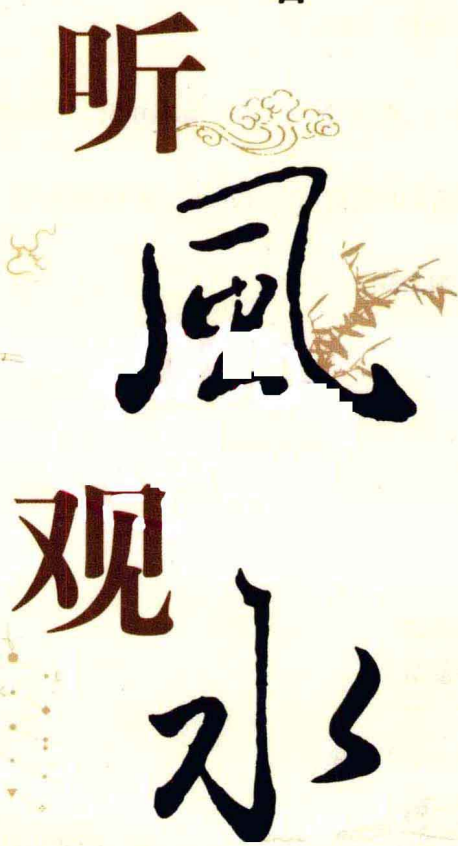 听
風
观
水